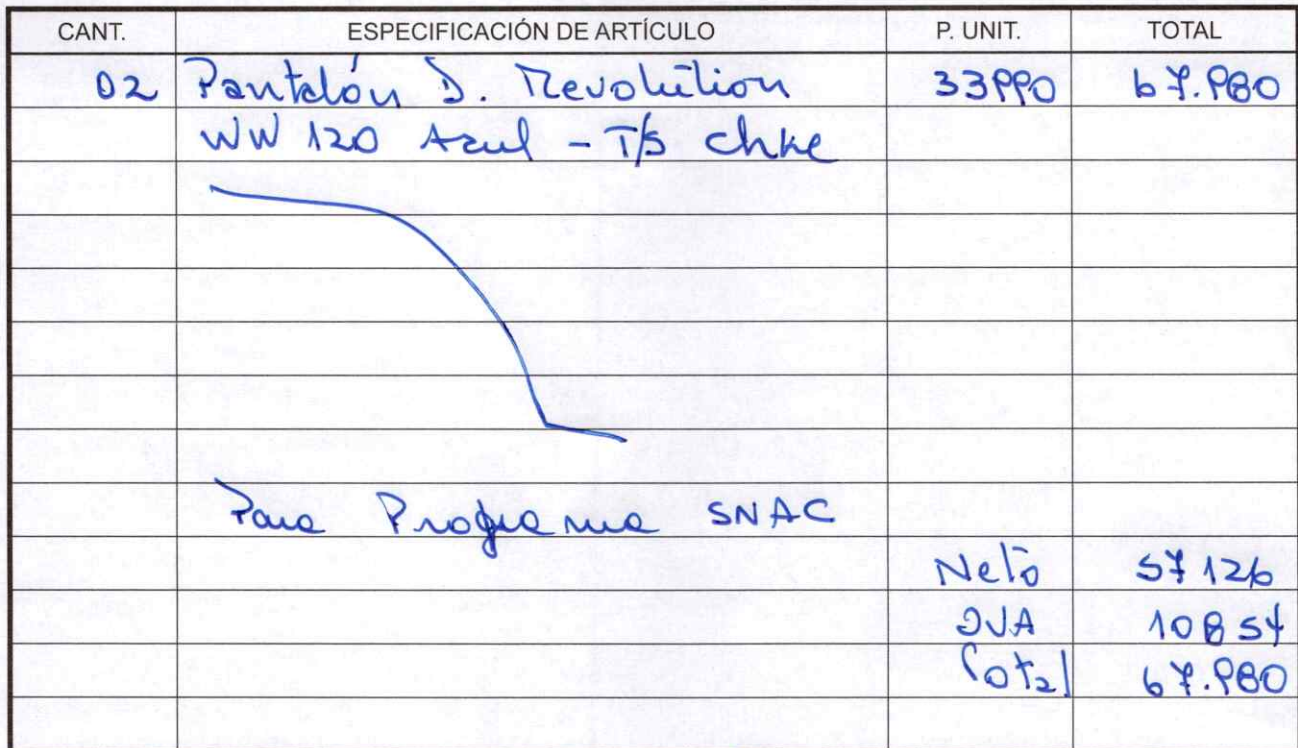 CANT. ESPECIFICACIÓN DE ARTÍCULO P. UNIT. TOTAL
02 Pantalón D. Revolution 33990 67.980
WW 120 Azul - T/S
Para Programa SNAC
Neto 57126
IVA 10854
Total 67.980